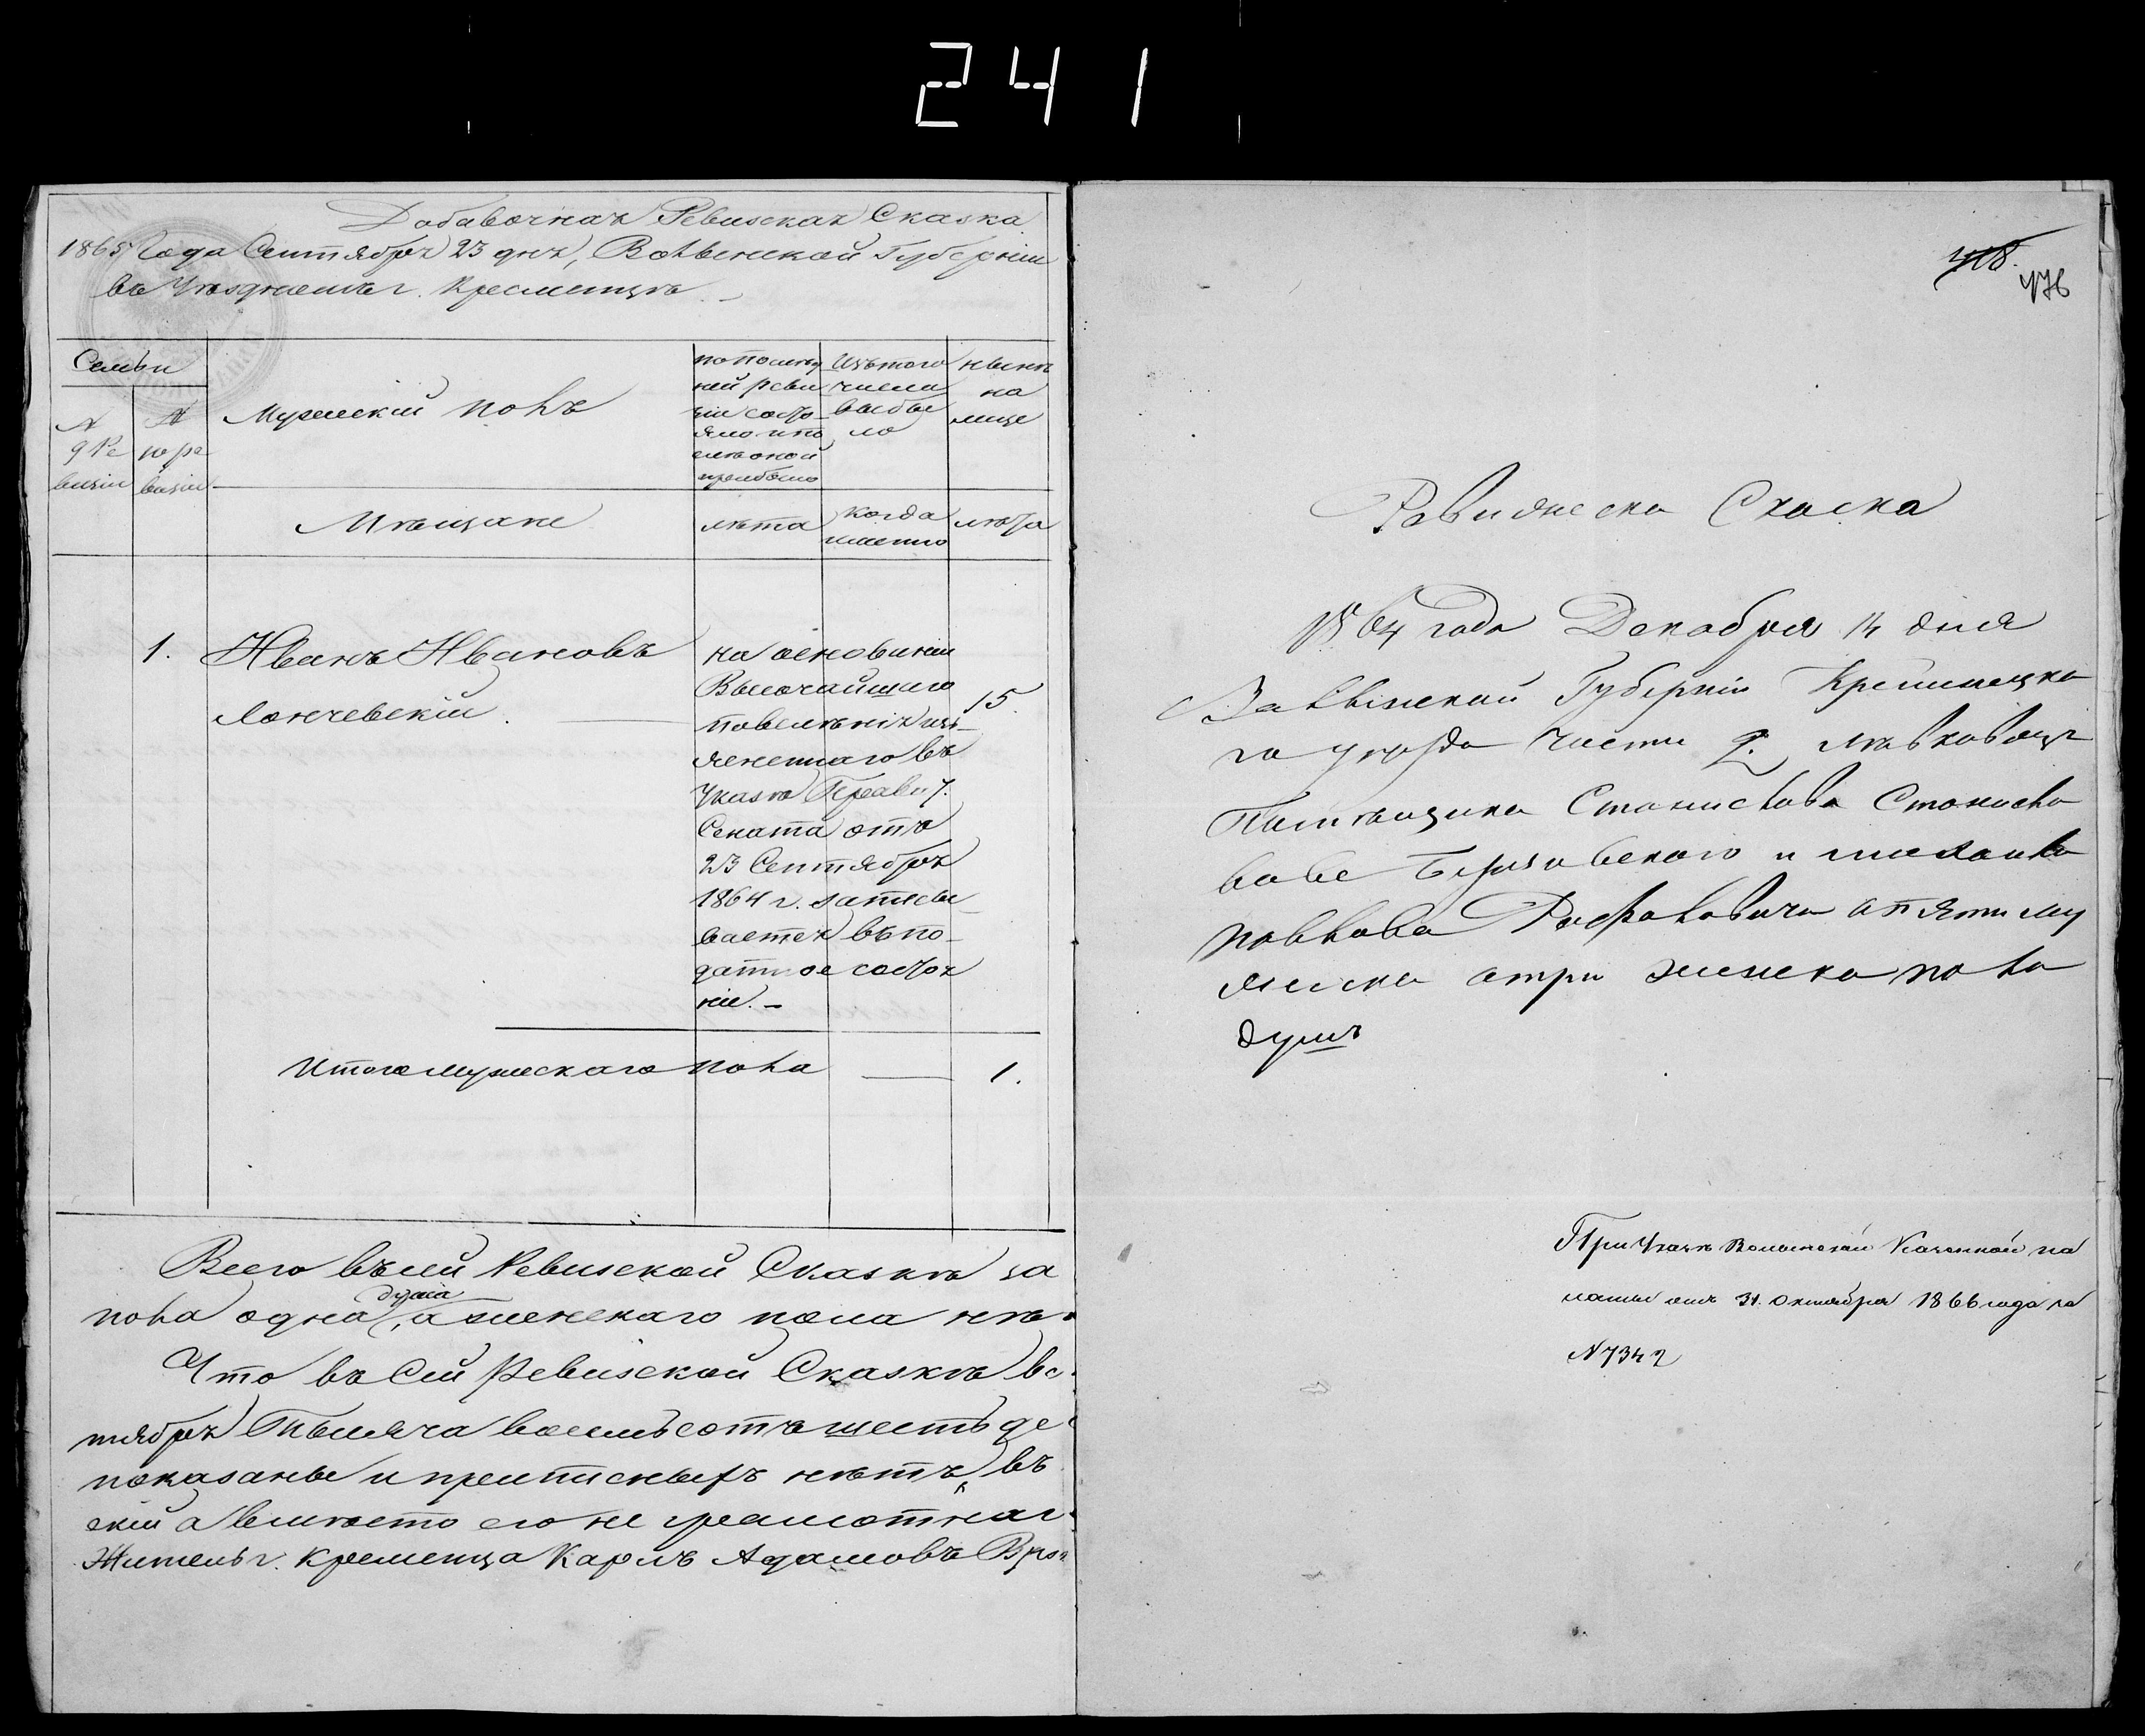 241
Добавочная Ревизская Сказка
1865 Года Сентября 23 дня, Волынской Губерніи
въ Уѣздномъ г. Кременцѣ
Семьи
№
9 Ре
визіи
№
по ре
визіи
Мужескій полъ
по послѣд
ней реви
зіи состо
яло и по
слѣ оной
прибыло
Изъ того
числа
выбы
ло
нынѣ
на
лице
Мѣщане
лѣта
когда
именно
лѣта
1.
Иванъ Ивановъ
Лончевскій
на основаніи
Высочайшаго
повелѣнія изъ
ясненнаго въ
Указѣ Правит.
Сената отъ
23 Сентября
1864 г. записы
вается въ по-
датное состоя
ніе. -
15.
Итого мужескаго пола — 1.
Всего въ сей Ревизской Сказкѣ за
пола одна душа, а женскаго пола нѣ
Что въ Сей Ревизской Сказкѣ вс
тября тысяча восемьсотъ шестьде
показаны и прописныхъ нѣтъ, въ
скій а вмѣсто его не грамотнаг
Житель г. Кременца Карлъ Адамовъ
418.
476
Ревизнска Скаска
1864 года Декабря 14 дня
Валынской Губерніи Кременецка
го уѣзда Части 2.
Памѣщика Станислава Станисла
вове и михаила
павлова а пять му
жеска а три женска пола
душъ
При Указѣ Волынской Казенной па
латы отъ 31. Октября 1866 года за
№ 7342